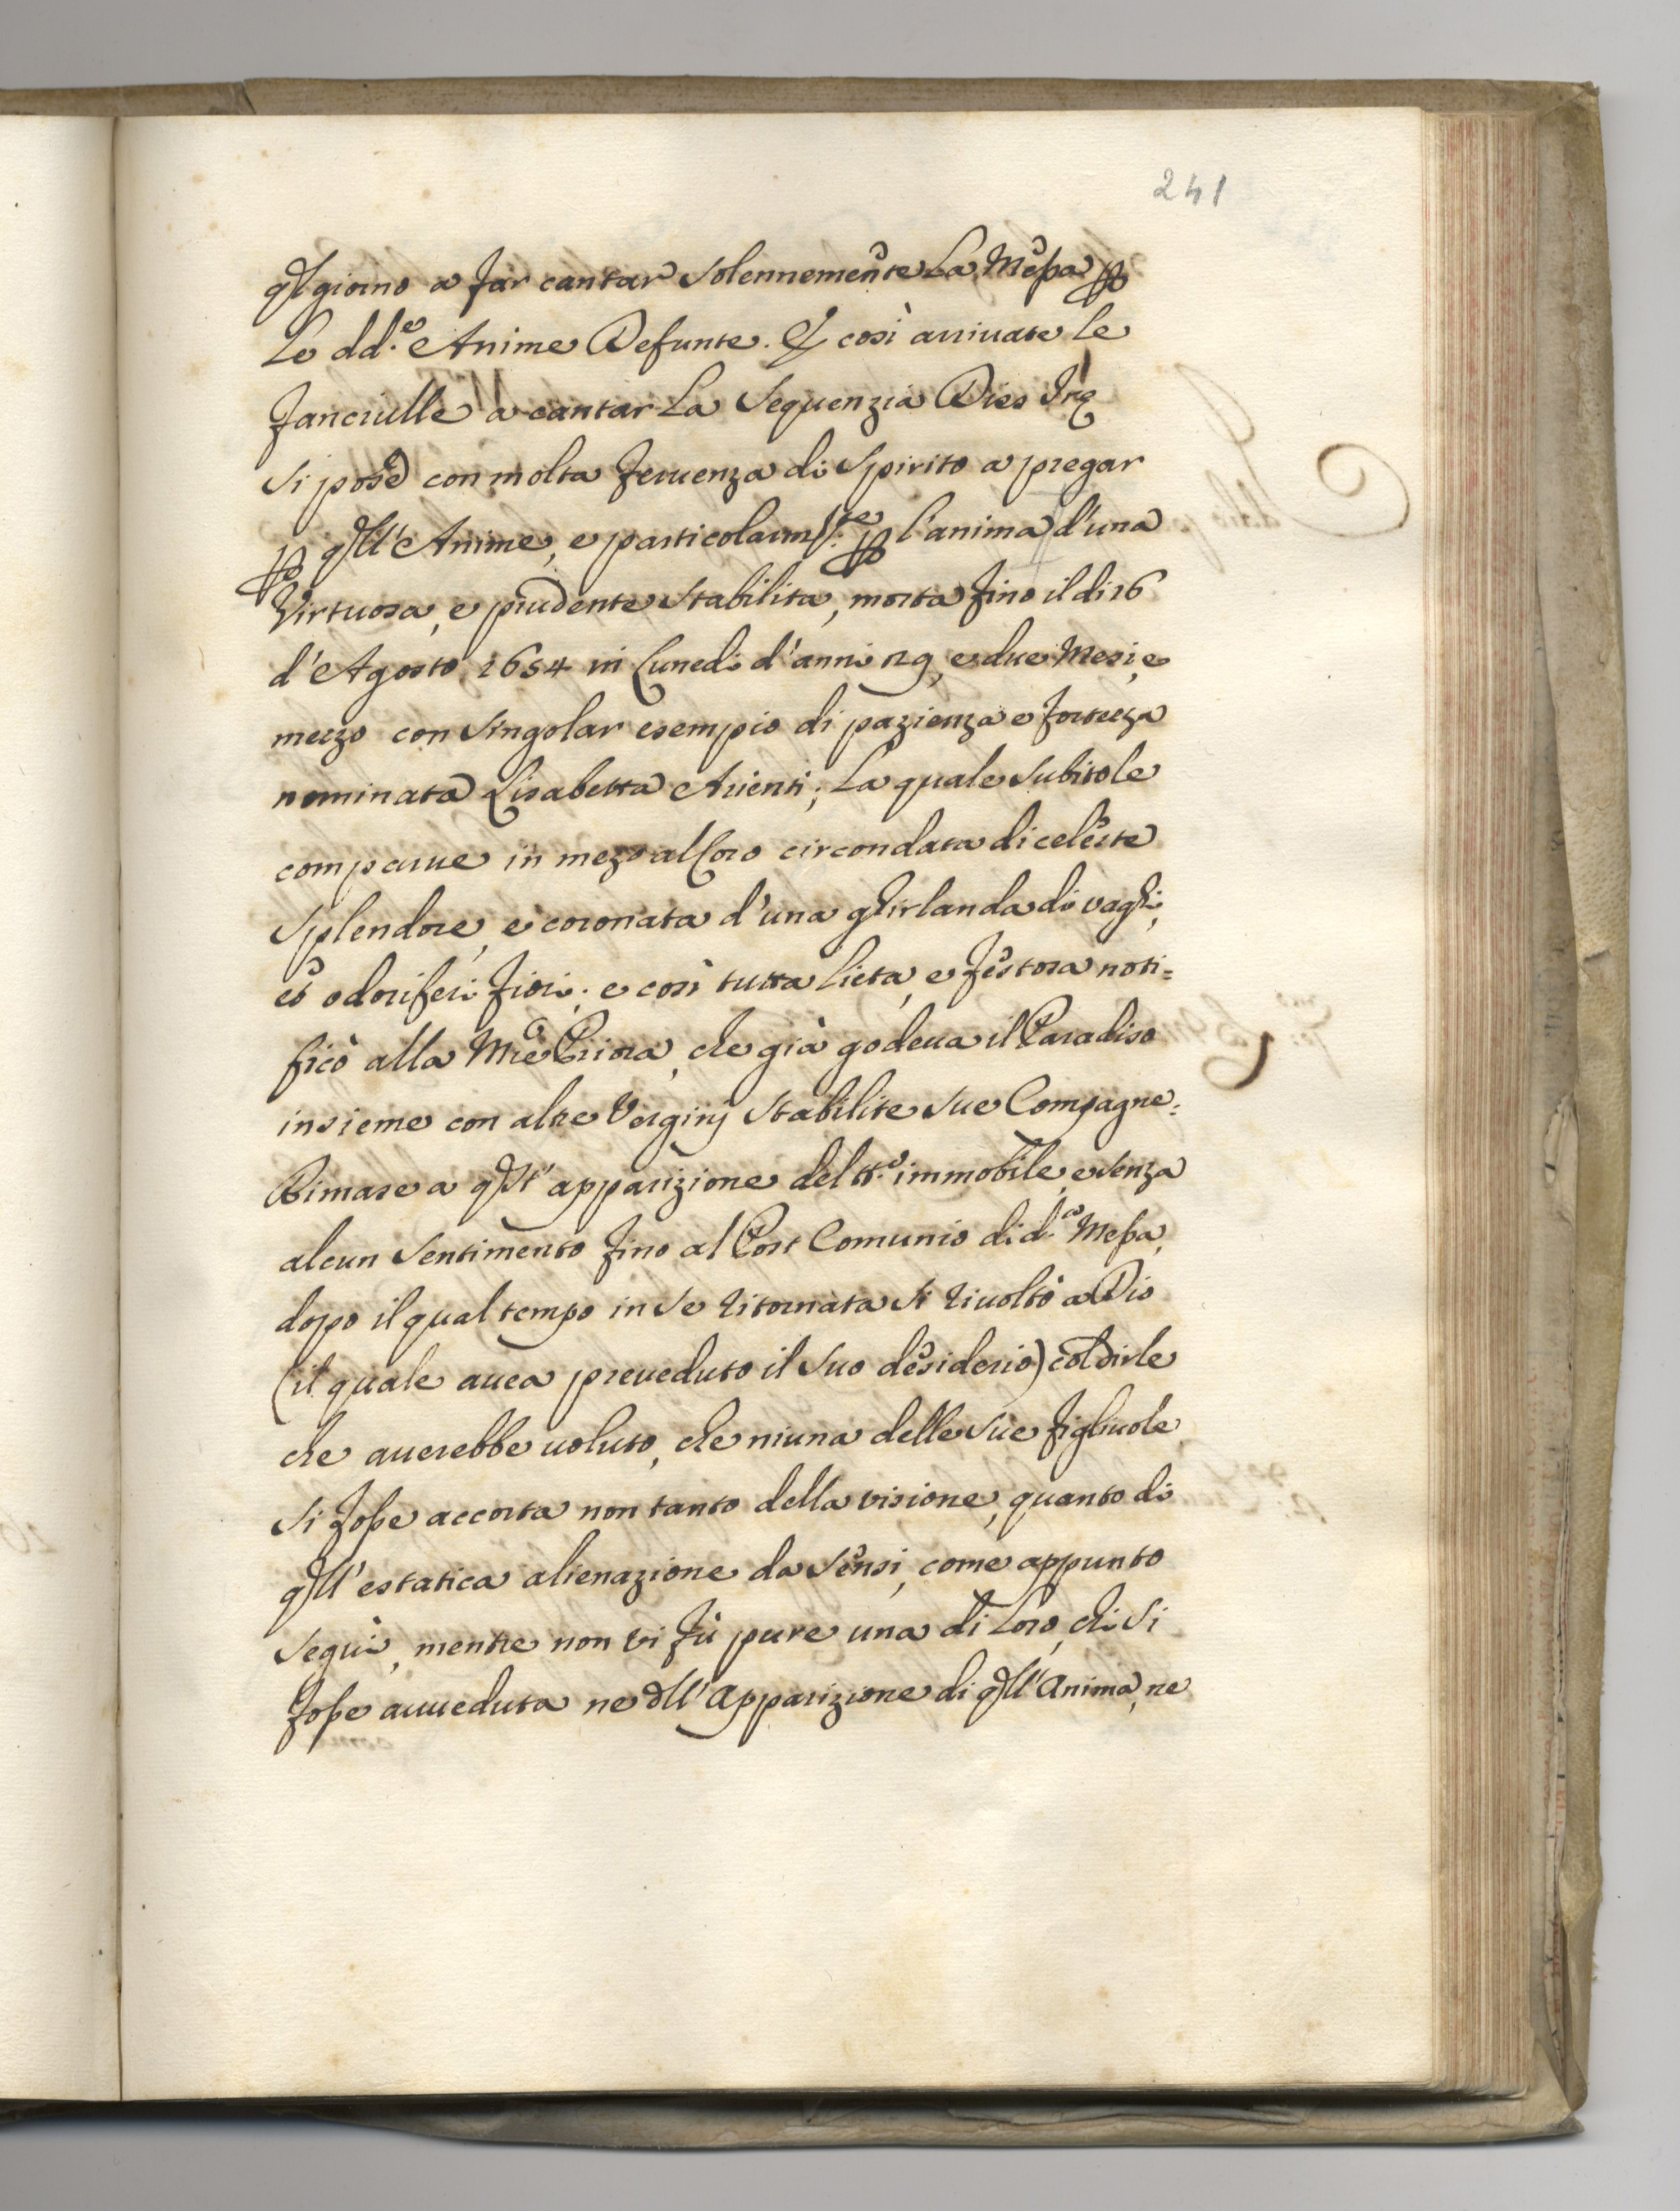 241
ql giorno a far cantar solennemente La Messa p
Le dd.e Anime Defunte. E così arrivate le
fanciulle a cantar La Sequenzia Dies Irę
si pose con molta fervenza di Spirito a pregar
p qll'Anime, e particolarm.te p l'anima d'una
Virtuosa, e prudente Stabilita, morta fino il di 16
d'Agosto 1654 in Lunedi d'anni 29, e due Mesi, e
mezzo con singolar esempio di pazienza e fortezza
nominata Lisabetta Arienti; La quale subito le
comparve in mezo al Coro circondata di celeste
Splendore, e coronata d'una ghirlanda di vaghi,
et odoriferi fiori; e così tutta lieta, e festosa noti=
ficò alla Mre Priora, che già godeva il Paradiso
insieme con altre Vergini Stabilite sue Compagne.
Rimase a qst'apparizione del tt.o immobile, e senza
alcun sentimento fino al Post Comunio di d.a Messa,
dopo il qual tempo in se ritornata si rivoltò a Dio
(il quale avea preveduto il suo desiderio) col dirle
che averebbe voluto, che niuna delle sue figliuole
si fosse accorta non tanto della visione, quanto di
qll'estatica alienazione da sensi, come appunto
seguì, mentre non vi fù pure una di Loro, chi si
fosse avveduta ne dll'Apparizione di qll'Anima, ne